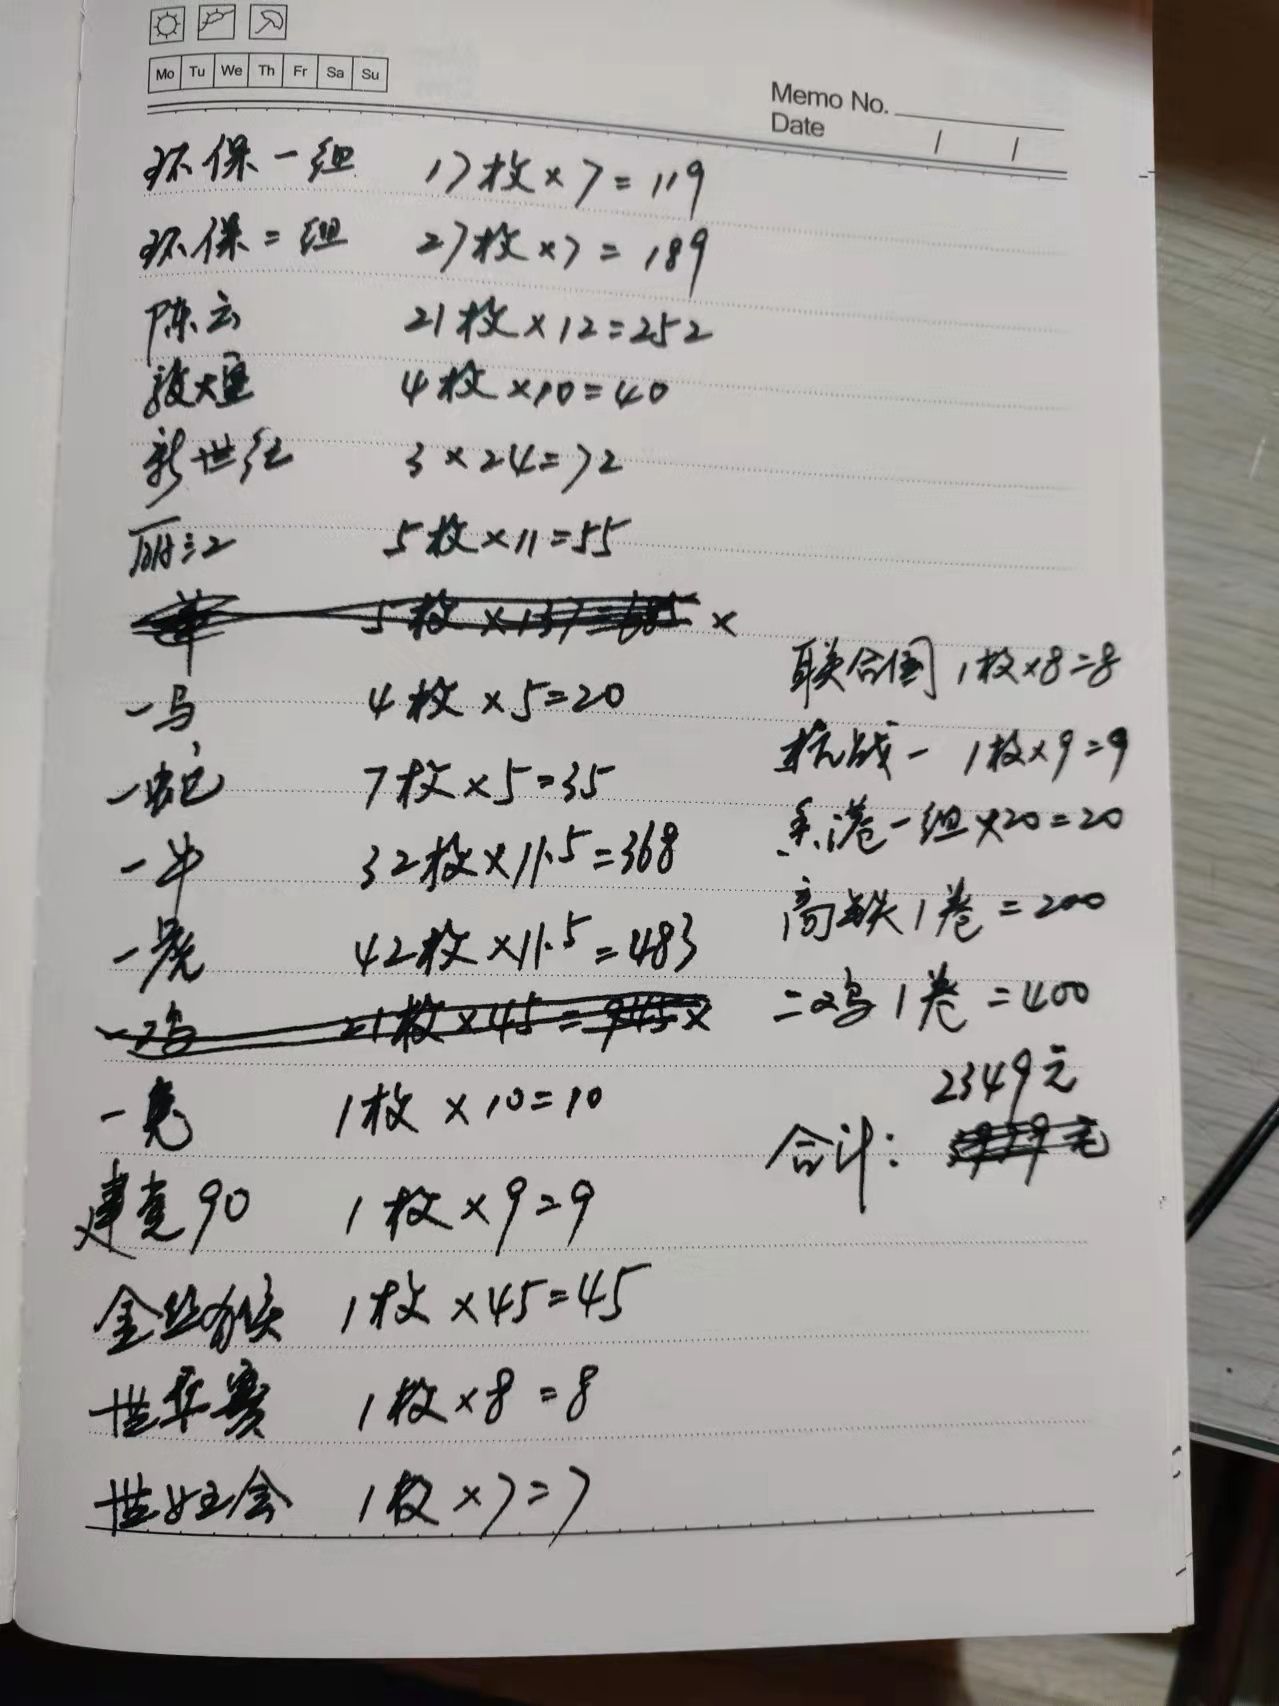 Mo Tu We Th Fr Sa Su
Memo No.
Date / /
环保一组 17枚×7=119
环保二组 27枚×7=189
陈云 21枚×12=252
4枚×10=40
新世纪 3×24=72
丽江 5枚×11=55
5枚×137=685 ×
一马 4枚×5=20
一蛇 7枚×5=35
一牛 32枚×11.5=368
一虎 42枚×11.5=483
一鸡 21枚×45=945 ×
一兔 1枚×10=10
建党90 1枚×9=9
金丝猴 1枚×45=45
世乒赛 1枚×8=8
世妇会 1枚×7=7
联合国 1枚×8=8
抗战一 1枚×9=9
香港一组×20=20
高铁1卷=200
二鸡1卷=400
2349元
合计: 元